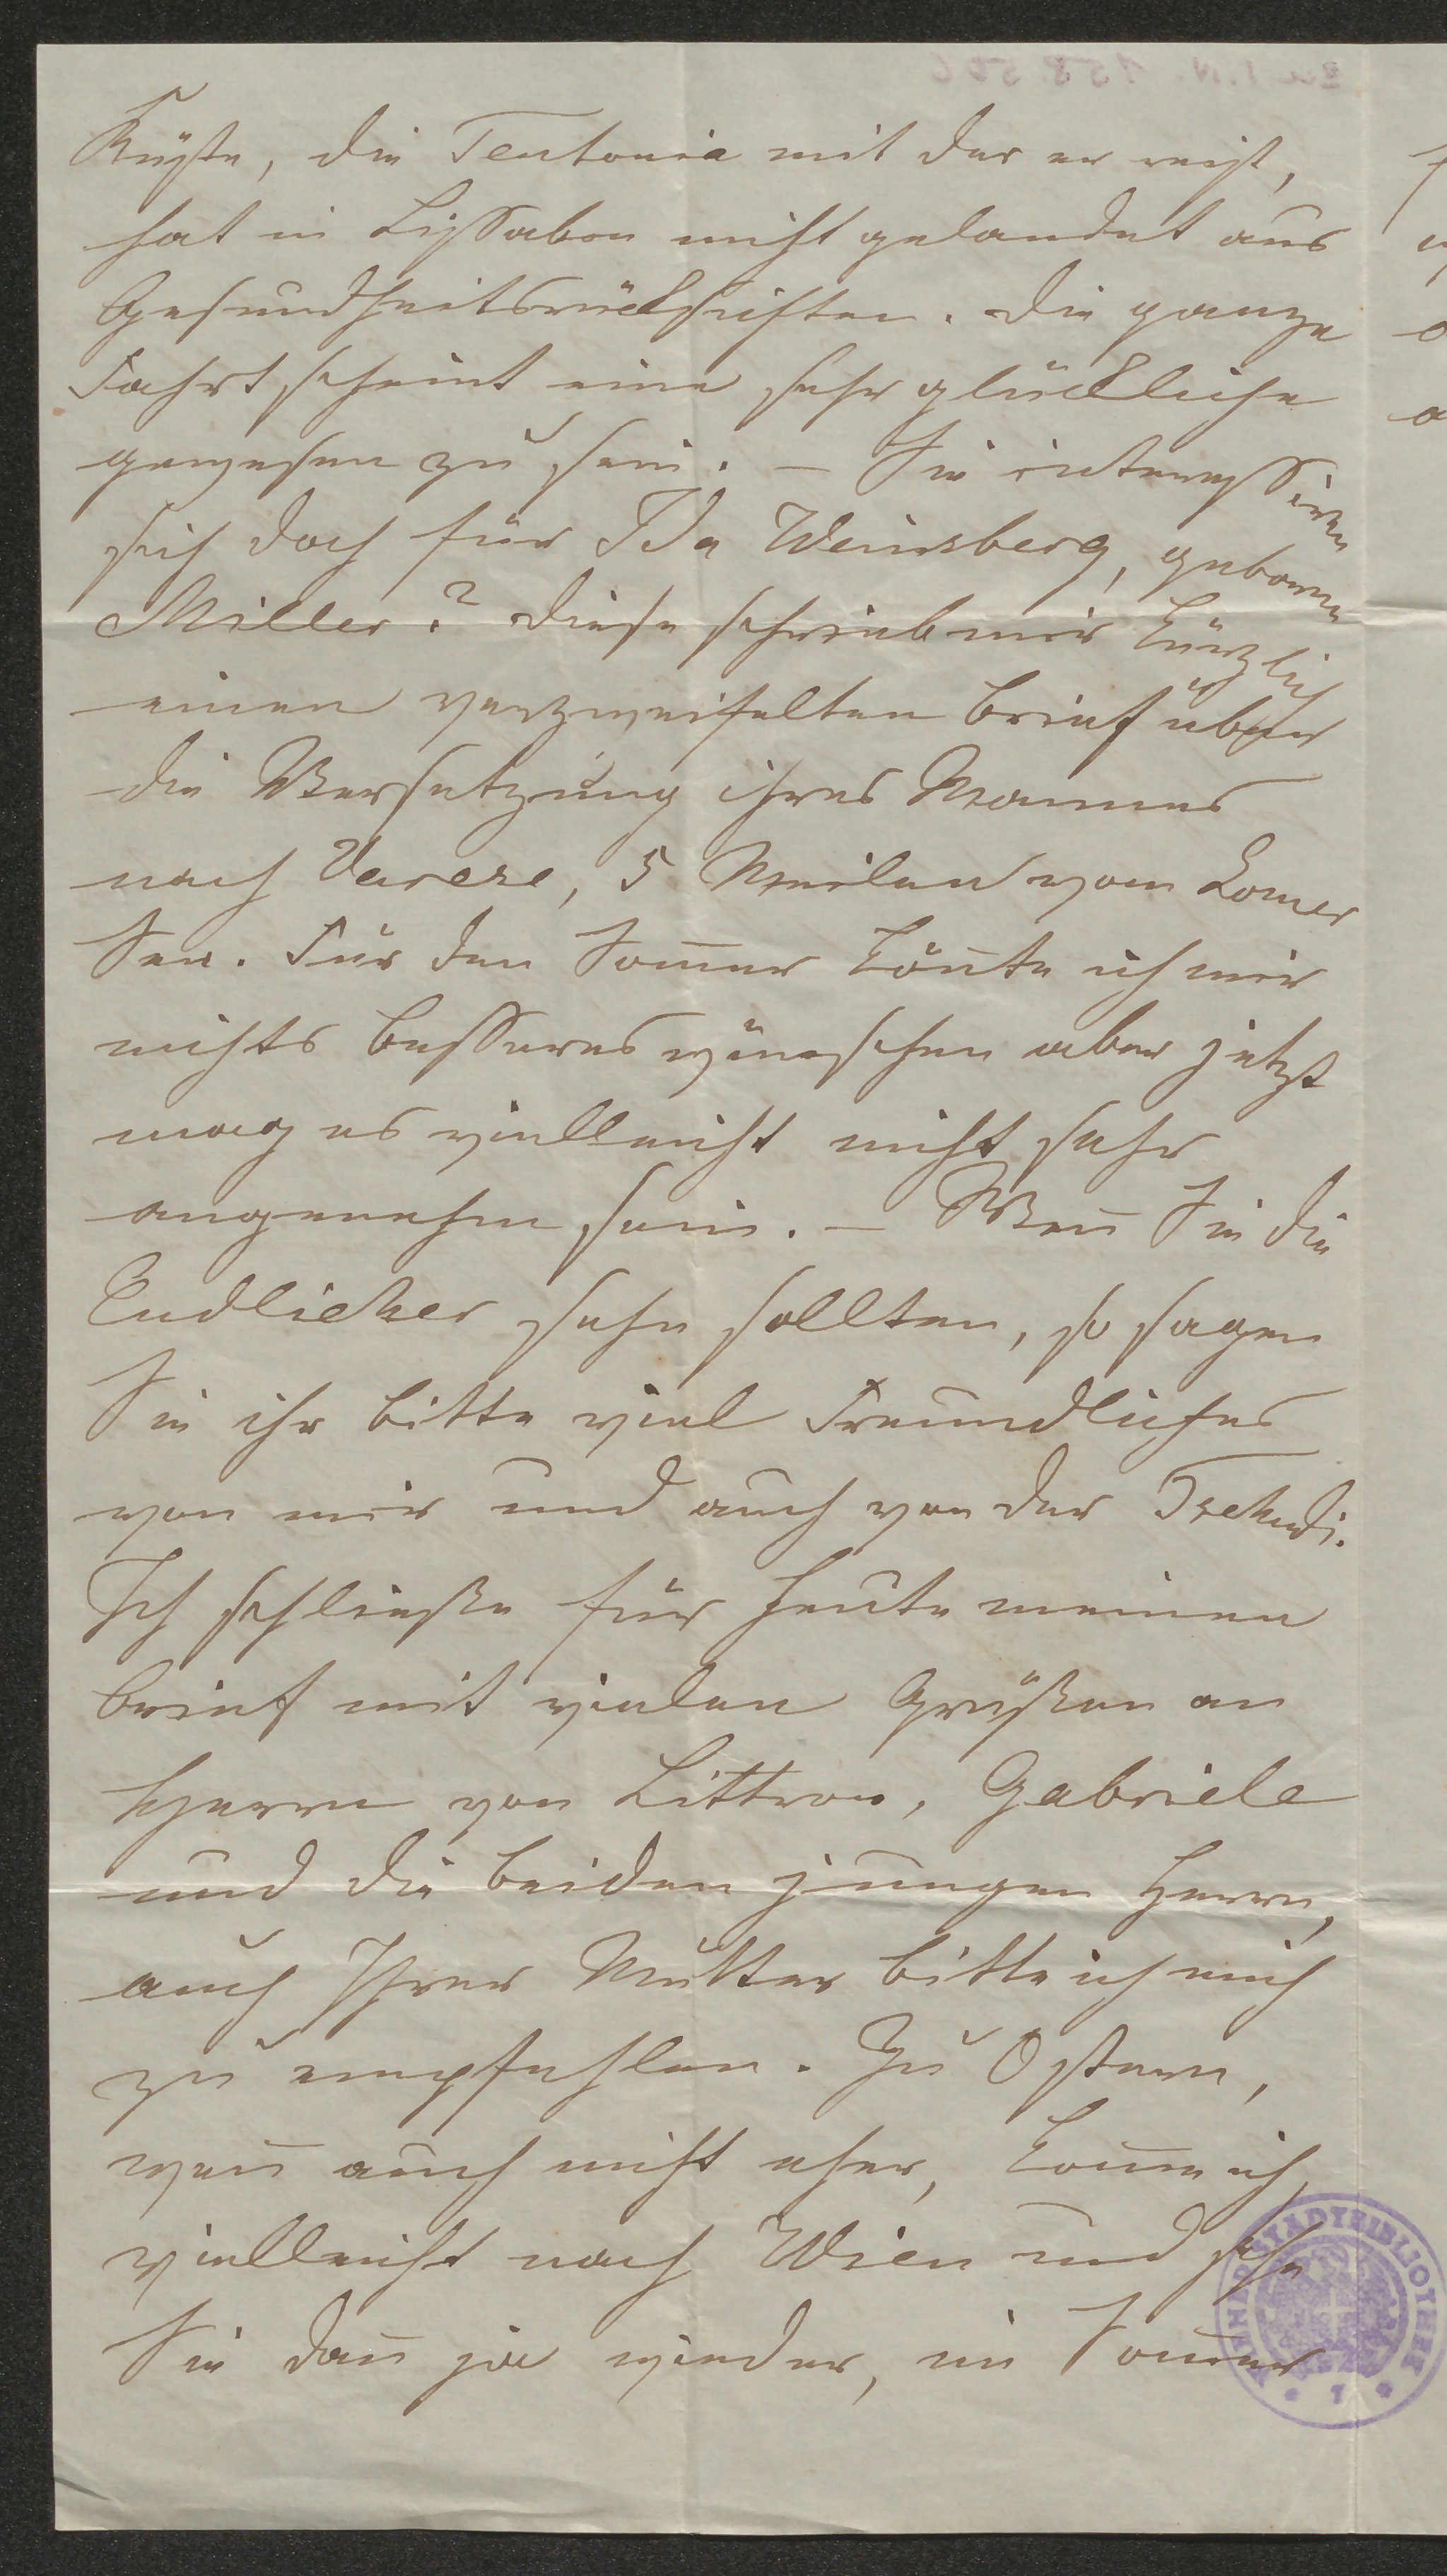 Küste, die Teutonia mit der er reist,
hat in Lissabon nicht gelandet aus
Gesundheitsrücksichten. Die ganze
Fahrt scheint eine sehr glückliche
gewesen zu sein. – Sie interessiren
sich doch für Ida Weinsberg, geborene
Miller? Diese schrieb mir kürzlich
einen verzweifelten Brief über
die Versetzung ihres Mannes
nach Varese, 5 Meilen vom Comer
See. Für den Som̅er kön̅te ich mir
nichts besseres wünschen aber jetzt
mag es vielleicht nicht sehr
angenehm sein. – Wen̅ Sie die
Endlicher sehn sollten, so sagen
Sie ihr bitte viel Freundliches
von mir und auch von der Tschudi.
Ich schließe für heute meinen
Brief mit vielen Grüßen an
Herrn von Littrow, Gabriele
und die beiden jungen Herrn,
auch Ihrer Mutter bitte ich mich
zu empfehlen. Zu Ostern,
wen̅ auch nicht eher, kom̅e ich
vielleicht nach Wien und sehe
Sie dan̅ ja wieder, im Som̅er